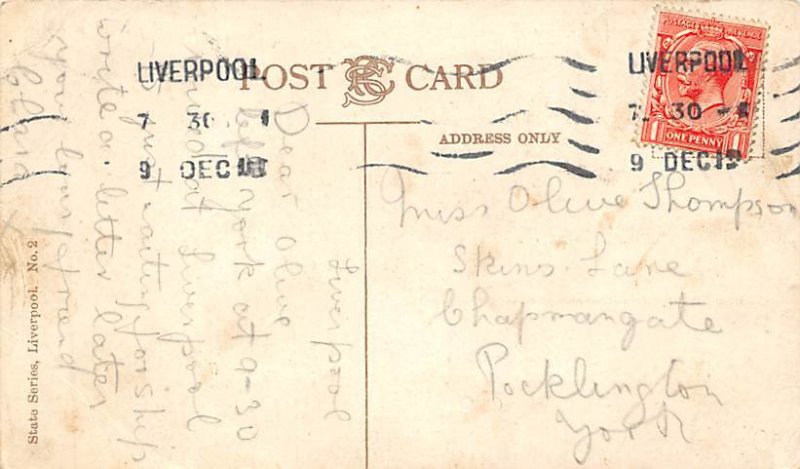 LIVERPOOL
7 30
9 DEC
POST CARD
ADDRESS ONLY
LIVERPOOL
7. 30 -
9 DEC
POSTAGE REVENUE
1 ONE PENNY 1
Liverpool
Dear Olive
left York at 9-30
at Liverpool
Just waiting for ship
write a letter later
your friend
Clara X
Miss Olive Thompson
Skins Lane
Chapmangate
Pocklington
York
State Series, Liverpool. No. 2